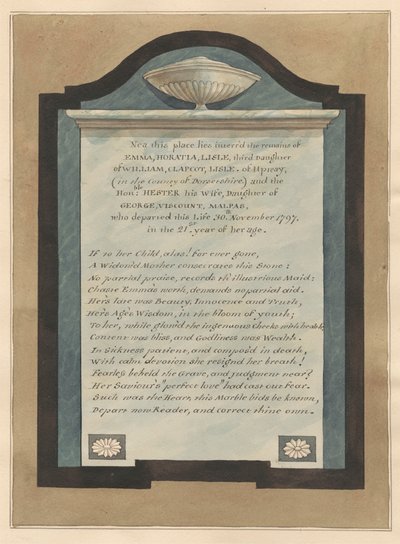 Near this place lies interr'd the remains of
EMMA, HORATIA, LISLE, third Daughter
of WILLIAM, CLAPCOT, LISLE, of Upway,
(in the County of Dorsetshire) and the
Honble HESTER his Wife, Daughter of
GEORGE, VISCOUNT, MALPAS,
who departed this Life 30th November 1797.
in the 21st year of her age.
If to her Child, alas! For ever gone,
A Widow'd Mother consecrates this Stone:
No partial praise, records th' illustrious Maid:
Chaste Emma's worth, demands no partial aid.
Her's late was Beauty, Innocence and Truth,
Her's Age's Wisdom, in the bloom of youth;
To her, while glow'd the ingenuous Cheeks with health,
Content was bliss, and Godliness was Wealth.
In Sickness patient, and compos'd in death,
With calm devotion she resign'd her breath!
Fearless beheld the Grave, and judgment near?
Her Saviour's "perfect love" had cast out fear.
Such was the Heart, this Marble bids be known,
Depart now Reader, and correct thine own.